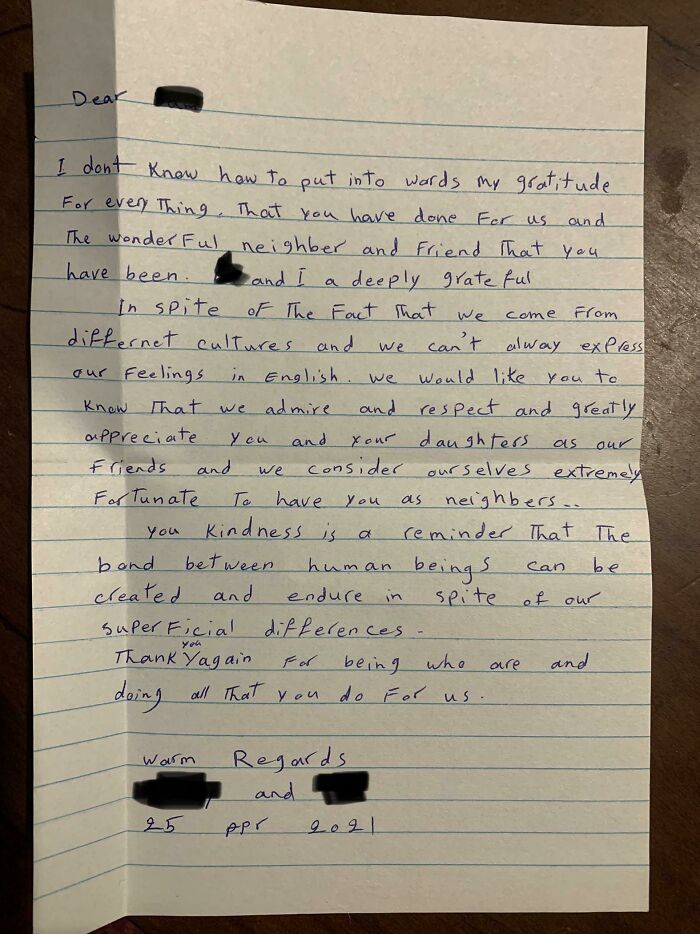 Dear
I dont know how to put into words my gratitude
For every Thing, That you have done For us and
The wonderFul neighber and Friend That you
have been. and I a deeply grateful
In spite oF The Fact That we come From
differnet cultures and we can't alway express
our Feelings in English. we would like you to
know That we admire and respect and greatly
appreciate you and your daughters as our
Friends and we consider ourselves extremely
Fortunate To have you as neighbers..
you kindness is a reminder That The
bond between human beings can be
created and endure in spite of our
superFicial differences.
you
Thank again For being who are and
doing all That you do For us.
warm Regards
and
25 Apr 2021